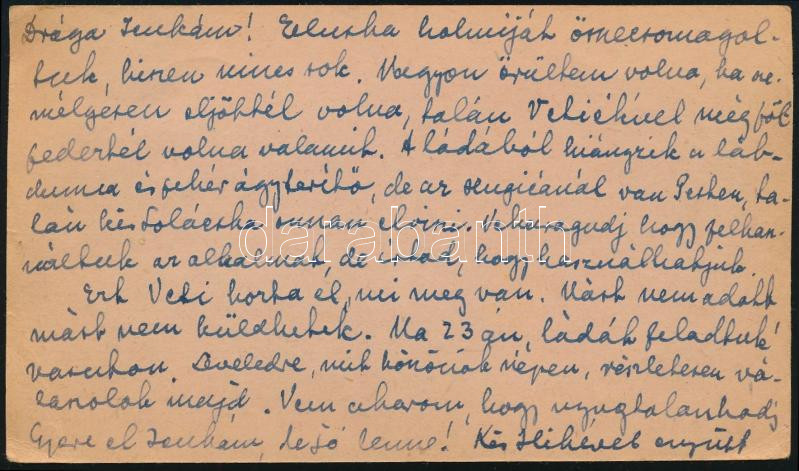 Drága Jenkám! Eduska holmiját összecsomagol-
tuk, hiszen nincs sok. Nagyon örültem volna, ha sze-
mélyesen eljöttél volna, talán Vetiéknél még föl
fedeztél volna valamit. A ládából hiányzik a láb-
dunna és fehér ágyterítő, de az Pesten, ta-
lán kis elvinni. Ne haragudj hogy felhasz-
náltuk az alkalmat, de írtad, hogy használhatjuk.
Ezt Veti hozta el, mi meg van. Mást nem adott
mást nem küldhetek. Ma 23 án, ládát feladtuk
vasuton. Leveledre, mit köszönök szépen, részletesen vá-
laszolok majd. Nem akarom, hogy nyugtalankodj
Gyere el Jenkám, de jó lenne! Kis együtt
darabanth